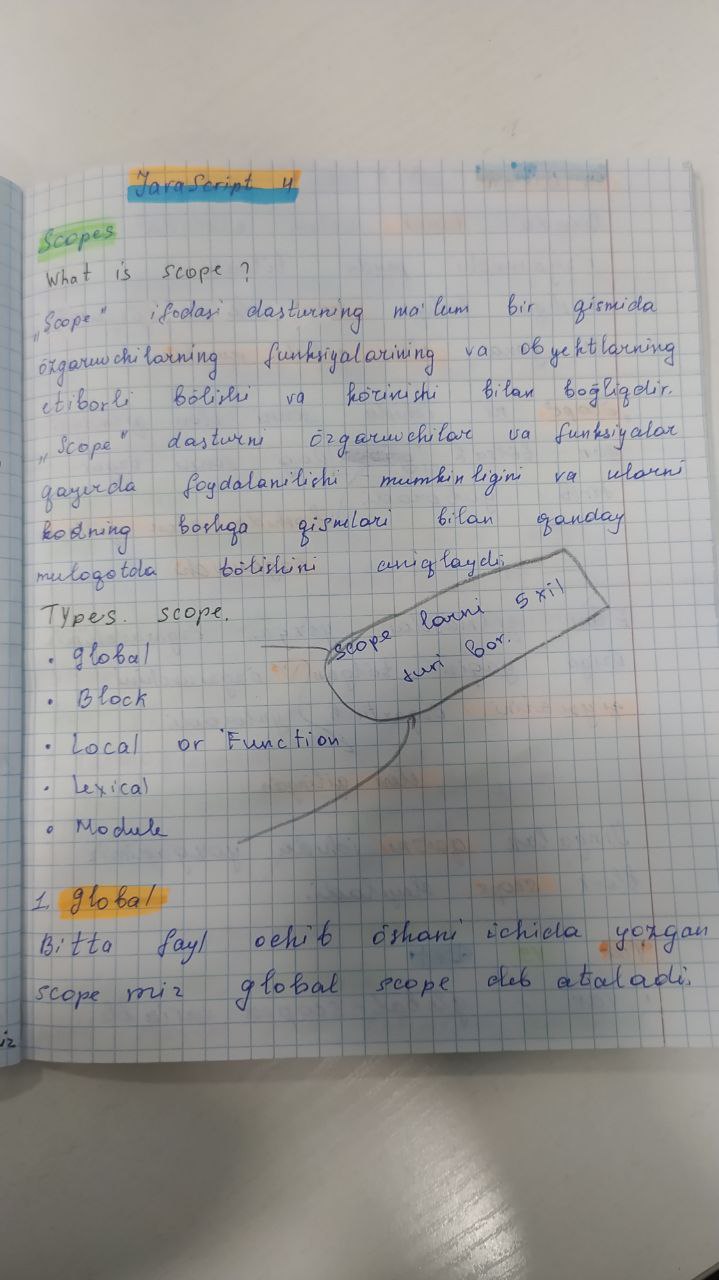 JavaScript 4
Scopes
What is scope ?
„Scope" ifodasi dasturning ma'lum bir qismida
özgaruvchilarning funksiyalarining va obyektlarning
etiborli bölishi va körinishi bilan boğliqdir.
„Scope" dasturni özgaruvchilar va funksiyalar
qayerda foydalanilishi mumkinligini va ularni
kodning boshqa qismlari bilan qanday
muloqotda bölishini aniqlaydi.
Types. scope.
• global
• Block
• Local or Function
• Lexical
• Module
scope larni 5 xil
turi bor.
1. global
Bitta fayl ochib öshani ichida yozgan
scope miz global scope deb ataladi.
iz